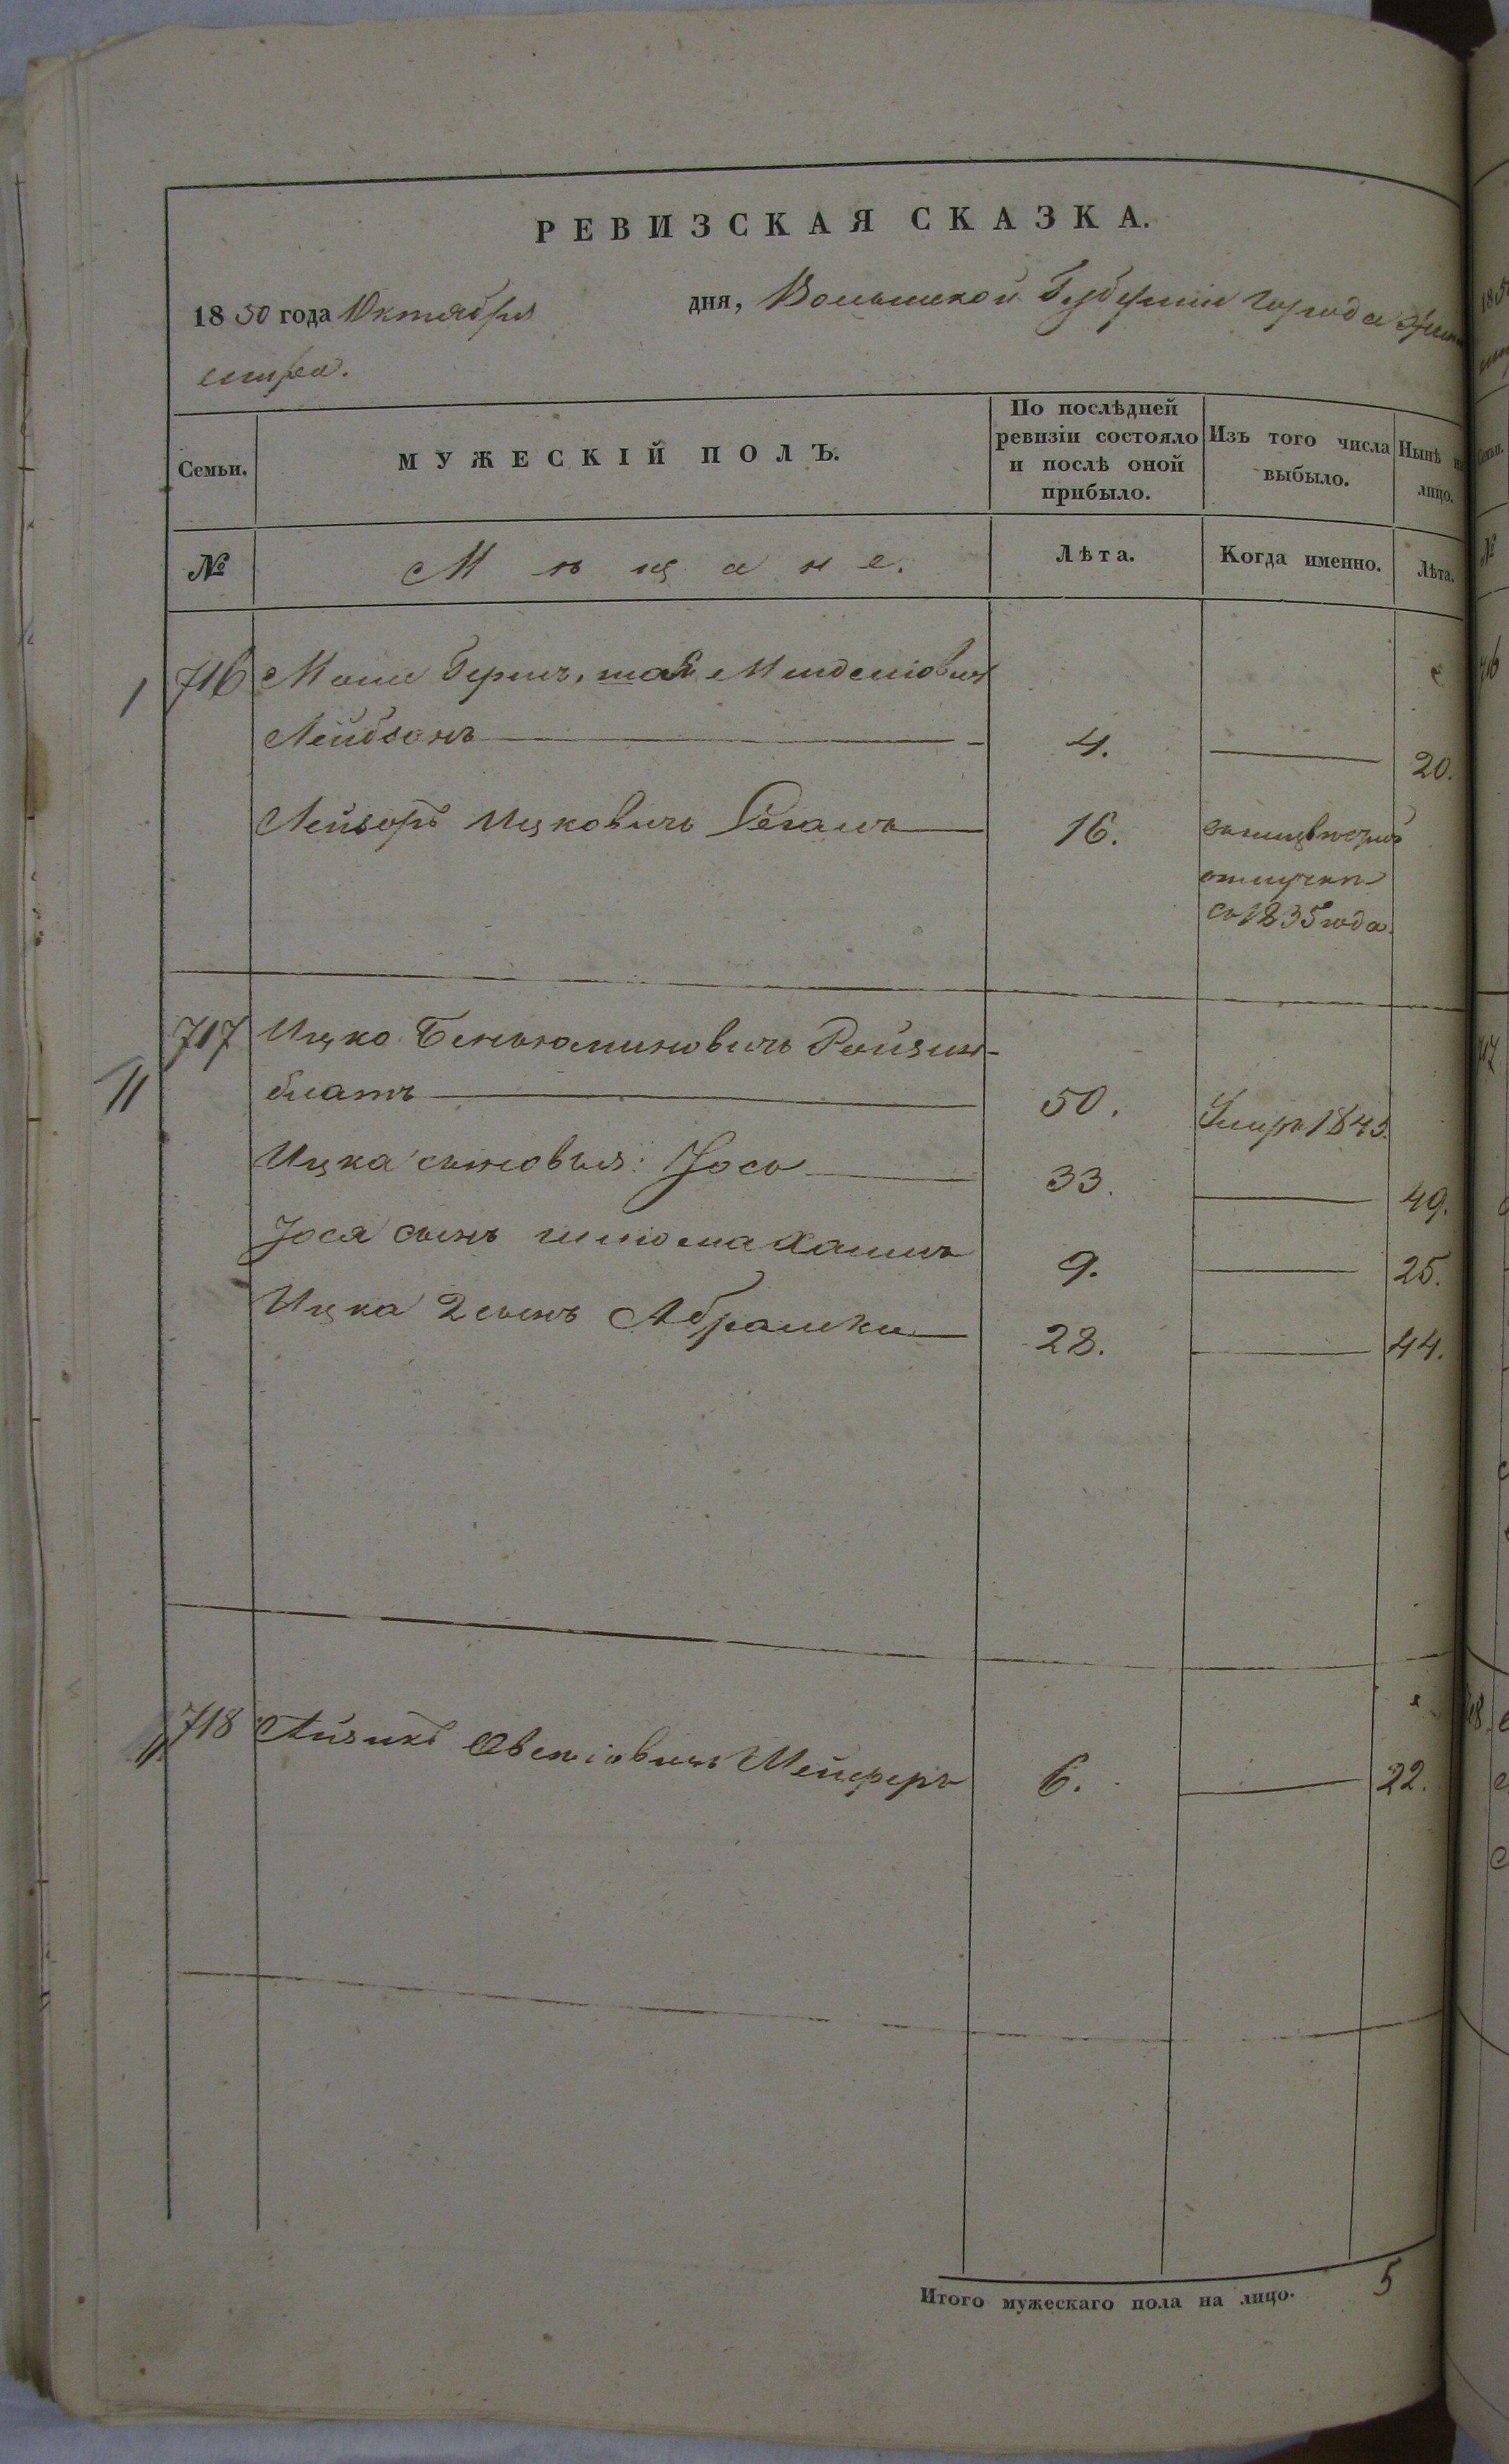 РЕВИЗСКАЯ СКАЗКА.
1850 года Октября дня, Волынской Губернии города Жито
мира.
Семьи. МУЖЕСКІЙ ПОЛЪ. По послѣдней ревизіи состояло и послѣ оной прибыло. Изъ того числа выбыло. Нынѣ на лицо.
№ Мѣщане. Лѣта. Когда именно. Лѣта.
1 716 Мошко Гершъ, Менделіовичъ
Лейбзонъ 4. 20.
Лейзоръ Ицковичъ 16.
отлучкѣ
съ 1835 года.
11 717 Ицко Беньюминовичъ Ройзин-
блатъ 50. Умеръ 1843.
Ицка сыновья: Іось 33. 49.
Іося сынъ Шлиома Хаимъ 9. 25.
Ицка 2 сынъ Абрамко 28. 44.
11 718 Айзикъ Овсіовичъ Мейеръ 6. 22.
Итого мужескаго пола на лицо. 5
185
№
716
717
718